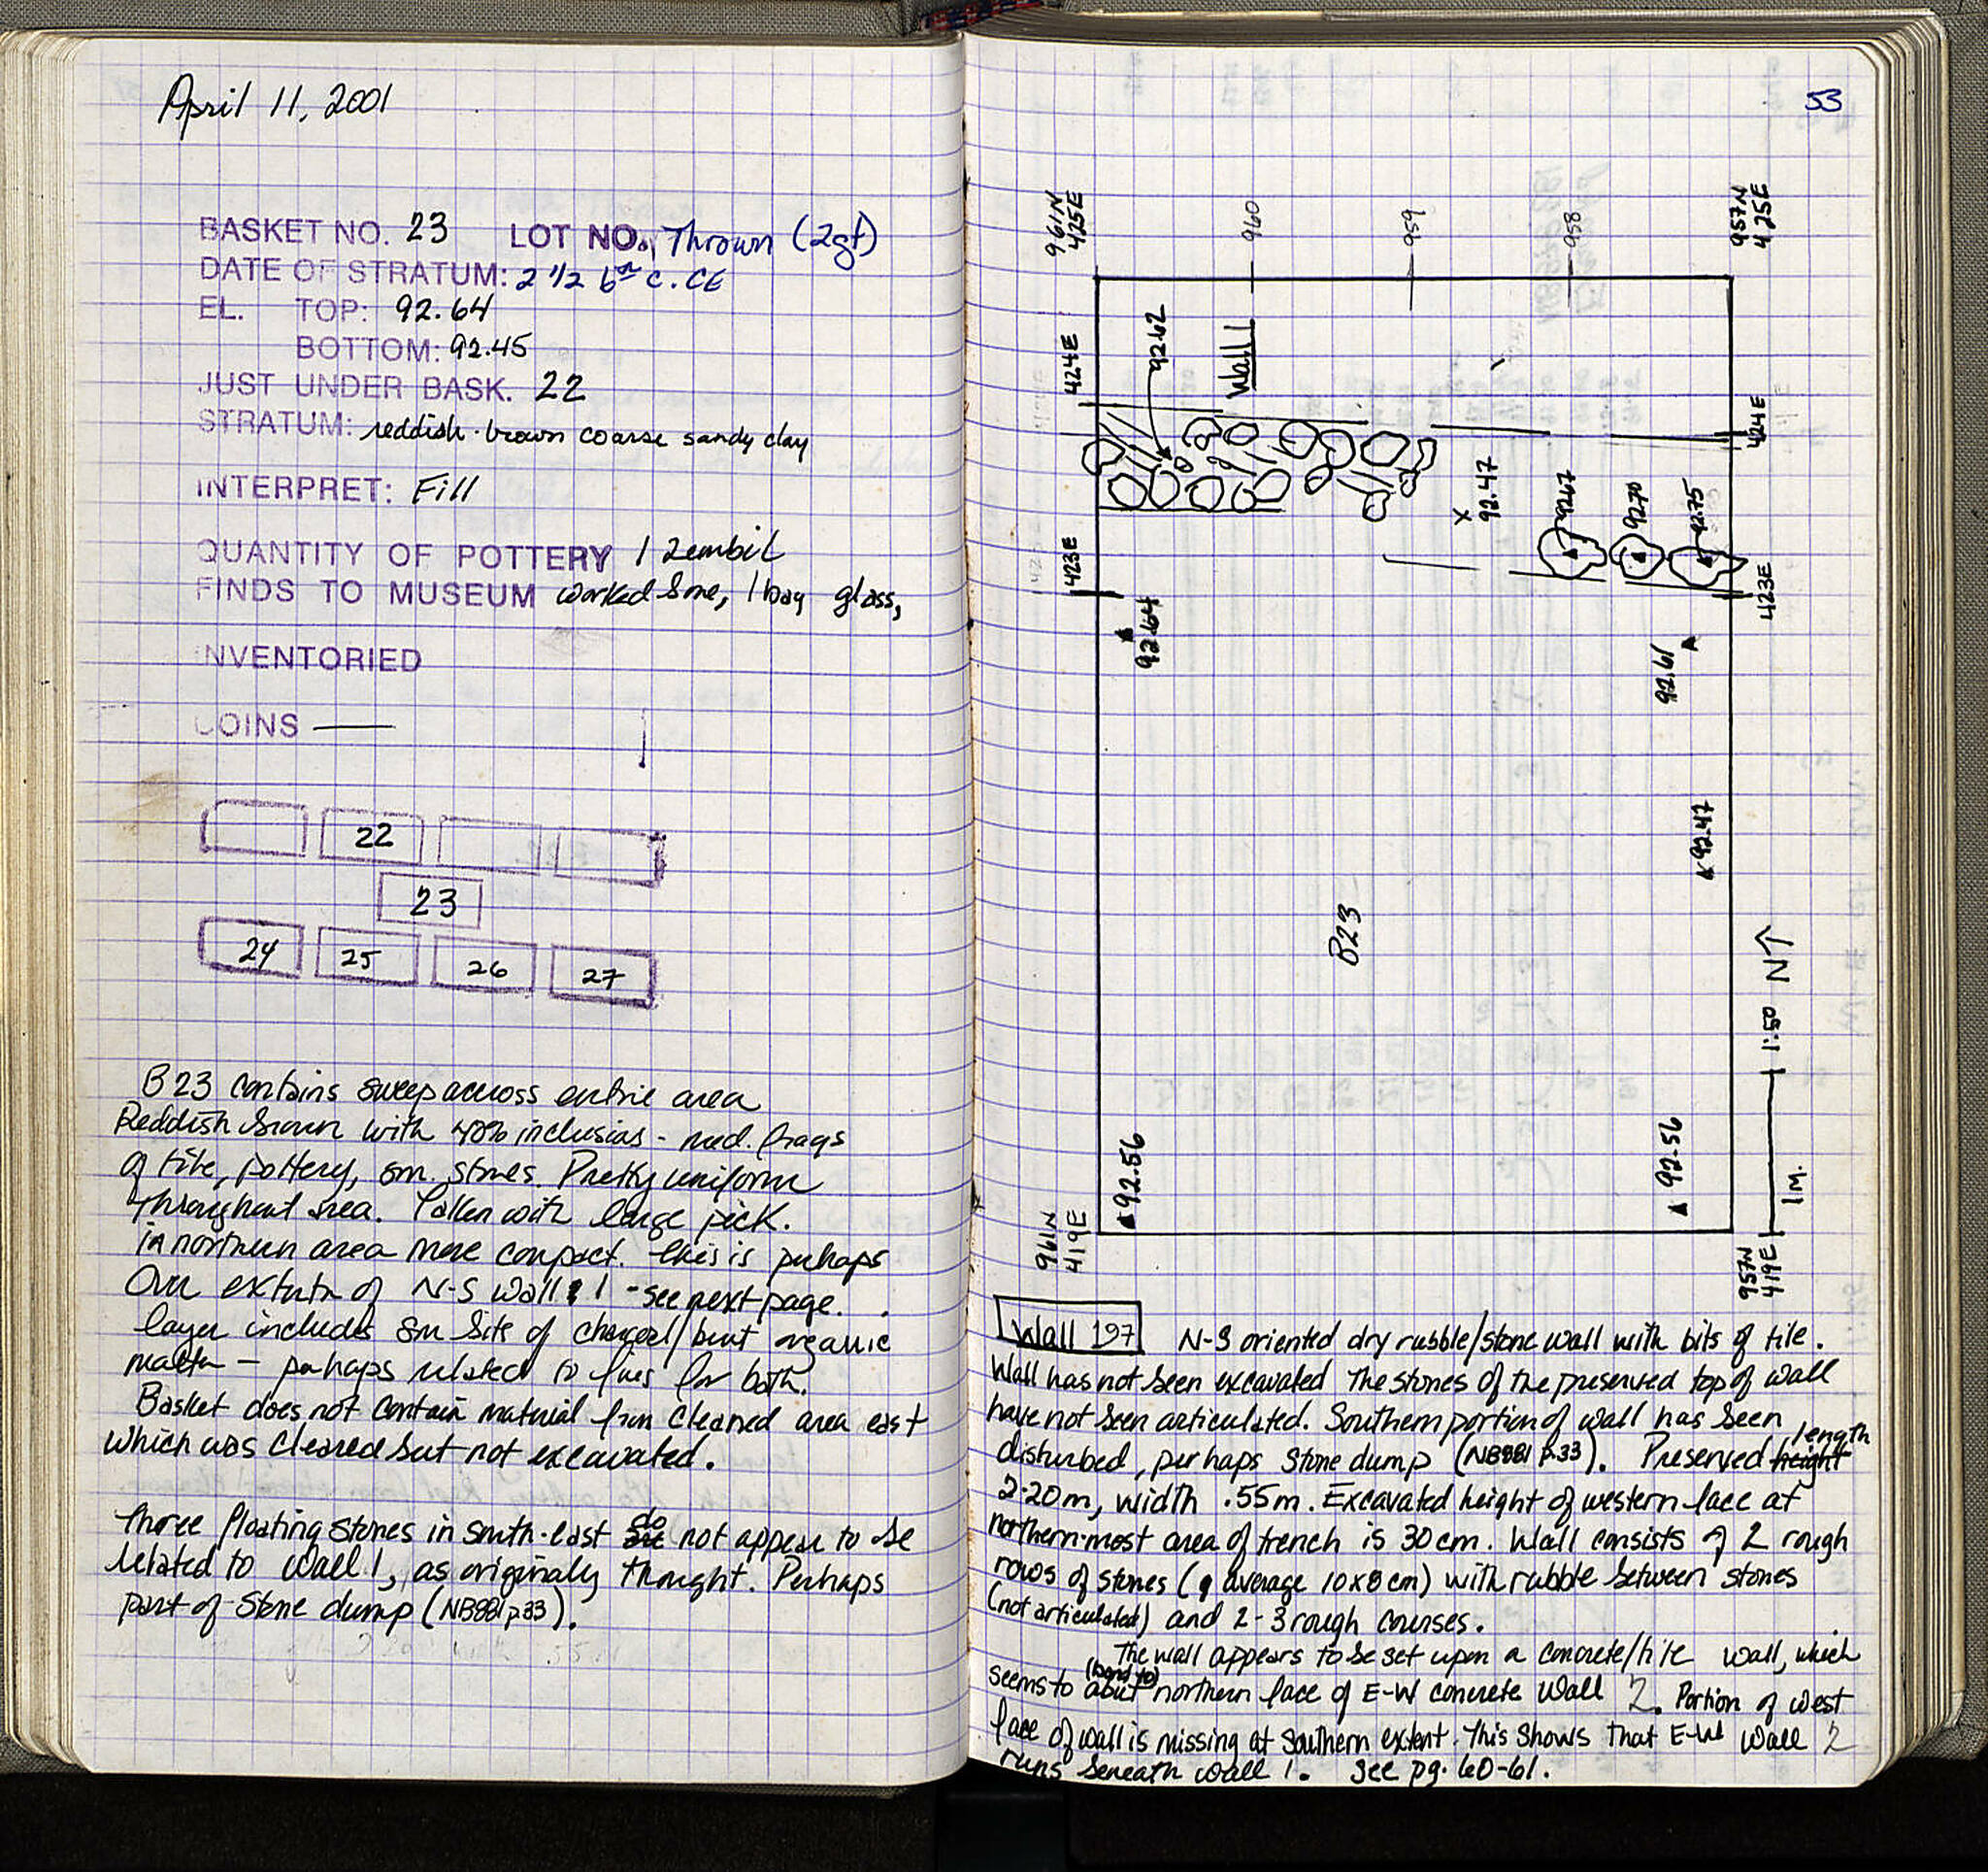 April 11, 2001
BASKET NO. 23 LOT NO. Thrown (2gt)
DATE OF STRATUM: 2 1/2 6th c. CE
EL. TOP: 92.64
BOTTOM: 92.45
JUST UNDER BASK. 22
STRATUM: reddish-brown coarse sandy clay
INTERPRET: Fill
QUANTITY OF POTTERY 1 Zembil
FINDS TO MUSEUM worked bone, 1 bag glass,
INVENTORIED
COINS —
22
23
24 25 26 27
B23 contains sweep across entire area
Reddish brown with 40% inclusions - med. frags
of tile, pottery, sm. stones. Pretty uniform
throughout area. Taken with large pick.
in northern area more compact. this is perhaps
over of N-S Wall 1 - see next page.
layer includes sm bits of charcoal/burnt organic
matter — perhaps related to fires for bath.
Basket does not contain material from cleaned area east
which was cleared but not excavated.
three floating stones in south-east do not appear to be
related to Wall 1, as originally thought. Perhaps
part of Stone dump (NB881 p33).
53
961N
425E
960
959
958
957N
425E
424E
92.62
Wall
424E
92.47
92.67
92.70
92.75
423E
423E
92.64
92.61
92.47
B23
N
1:50
1m.
92.56
92.56
961N
419E
957N
419E
Wall 197 N-S oriented dry rubble/stone wall with bits of tile.
Wall has not been excavated The stones of the preserved top of wall
have not been articulated. Southern portion of wall has been
disturbed, perhaps stone dump (NB881 p.33). Preserved height length
2.20m, width .55m. Excavated height of western face at
northern-most area of trench is 30cm. Wall consists of 2 rough
rows of stones (of average 10x8 cm) with rubble between stones
(not articulated) and 2-3 rough courses.
The wall appears to be set upon a concrete/tile wall, which
seems to abut (bond to) northern face of E-W concrete Wall 2. Portion of west
face of wall is missing at southern extent. This shows that E-W Wall 2
runs beneath Wall 1. See pg. 60-61.